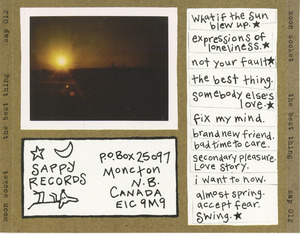 moon socket    the best thing    sap 012
SAPPY
RECORDS
P.O. Box 25097
Moncton
N.B.
CANADA
E1C 9M9
what if the sun
blew up.★
expressions of
loneliness.★
not your fault★
the best thing.
somebody else's
love.★
fix my mind.
brand new friend.
bad time to care.
secondary pleasure.
Love story.
i want to know.
almost spring.
accept fear.
Swing.★
moon socket    the best thing    sap 012